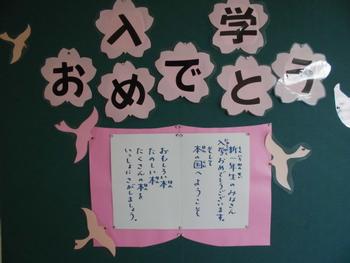 入学
おめでとう
新一年生のみなさん
入学おめでとうございます。
そして
本の国へようこそ
おもしろい本
たのしい本
たくさんの本を
いっしょにさがしましょう。